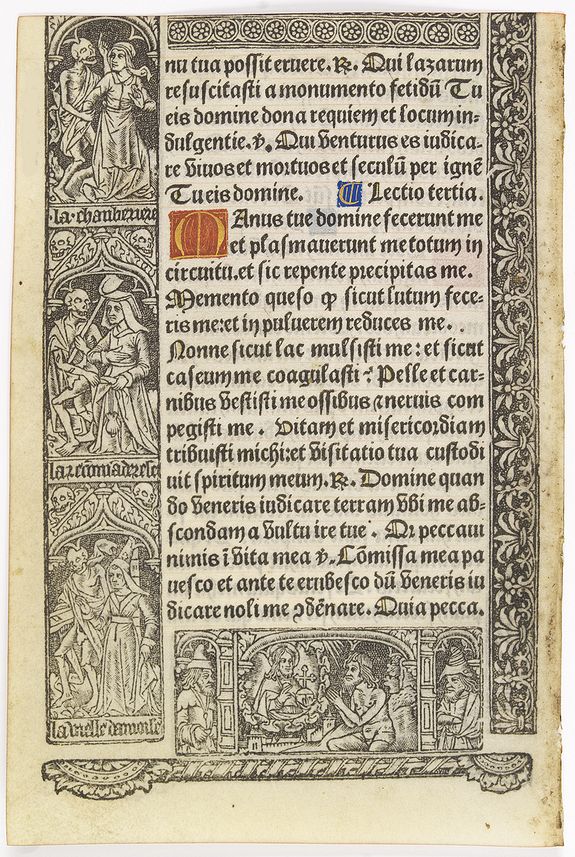 nu tua possit eruere. ℟. Qui lazarum
resuscitasti a monumento fetidū Tu
eis domine dona requiem et locum in-
dulgentie. ℣. Qui venturus es iudica-
re viuos et mortuos et seculū per ignē
Tu eis domine. Lectio tertia.
Manus tue domine fecerunt me
et plasmauerunt me totum in
circuitu. et sic repente precipitas me.
Memento queso ꝙ sicut lutum fece-
ris me: et in puluerem reduces me.
Nonne sicut lac mulsisti me: et sicut
caseum me coagulasti? Pelle et car-
nibus vestisti me ossibus ⁊ neruis com
pegisti me. Vitam et misericordiam
tribuisti michi: et visitatio tua custodi
uit spiritum meum. ℟. Domine quan
do veneris iudicare terram vbi me ab-
scondam a vultu ire tue. Qr peccaui
nimis ī vita mea ℣. Cōmissa mea pa
uesco et ante te erubesco dū veneris iu
dicare noli me ꝯdēnare. Quia pecca.
la chanberiere
la recomaderese
la vielle damoise